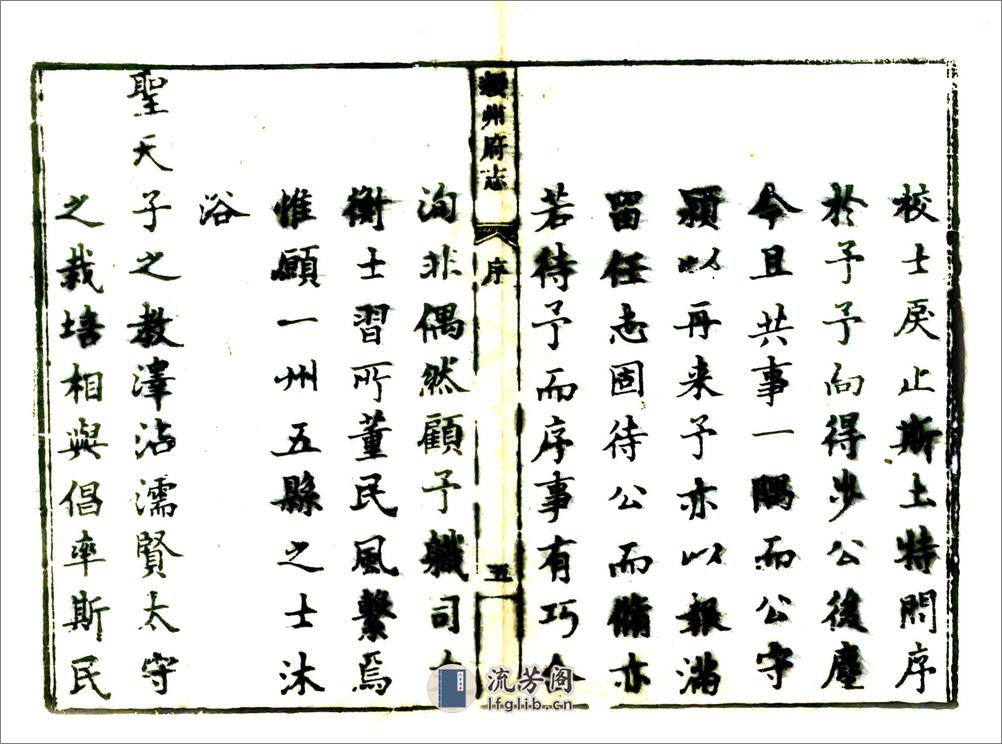 校士戾止斯土特問序
於予予向得步公後塵
今且共事一隅而公守
潁以再来予亦以報滿
留任志固待公而脩亦
若待予而序事有巧合
潁州府志
序
五
洵非偶然顧予軄司
衡士習所董民風繫焉
惟願一州五縣之士沐
浴
聖天子之教澤沾濡賢太守
之栽培相與倡率斯民
流芳阁
lfglib.cn